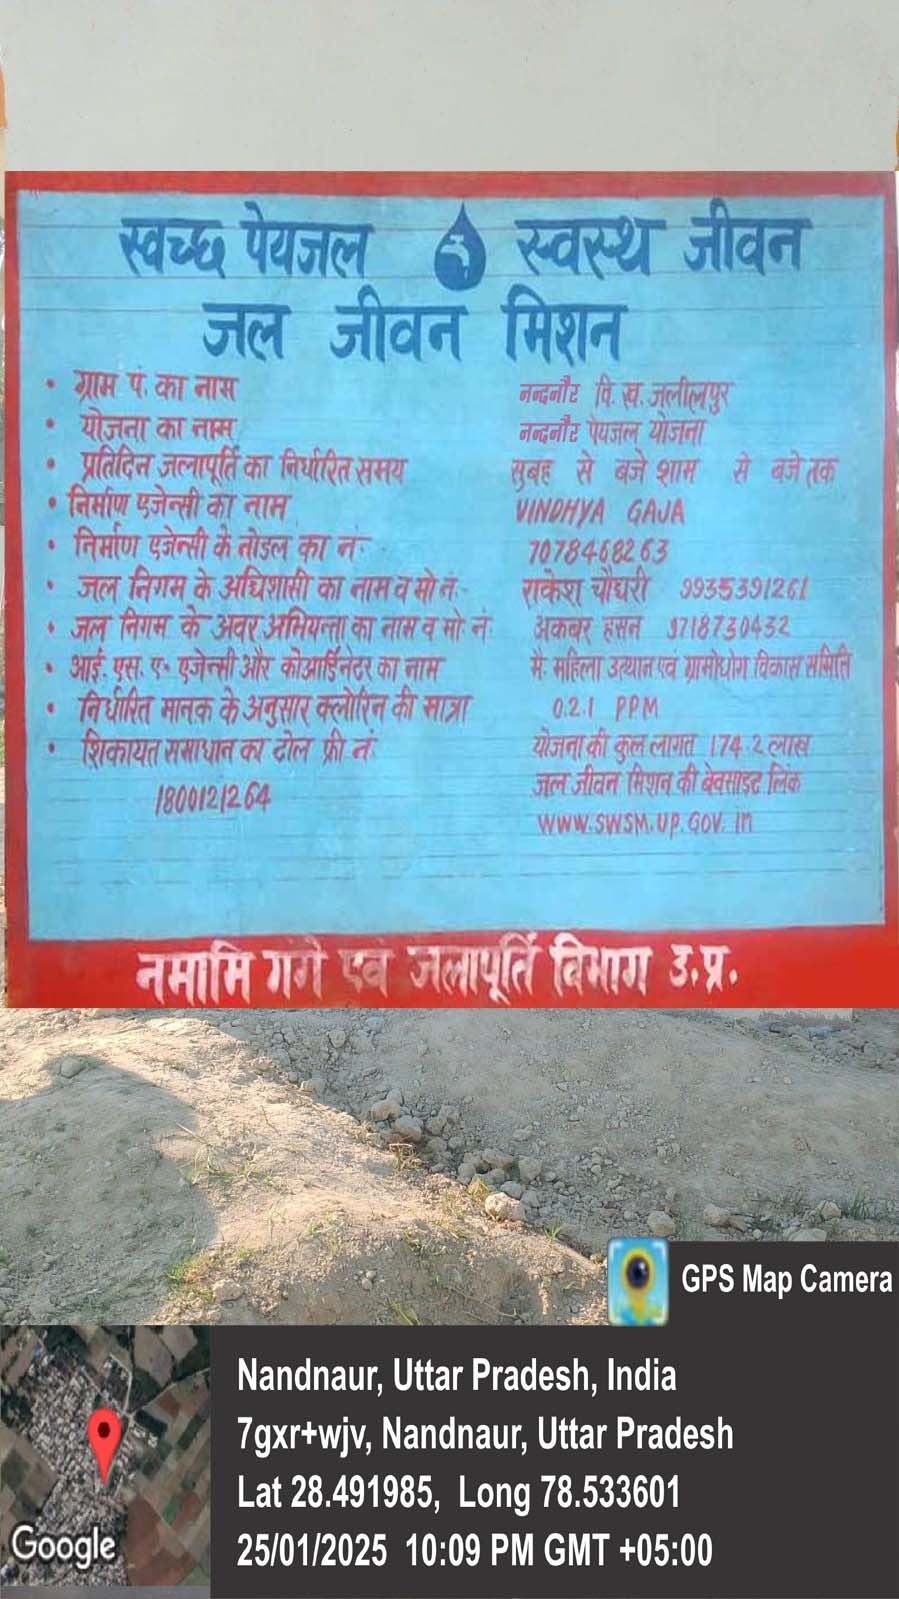 स्वच्छ पेयजल स्वस्थ जीवन
जल जीवन मिशन
• ग्राम पं. का नाम नन्दनौर वि. ख. जलीलपुर
• योजना का नाम नन्दनौर पेयजल योजना
• प्रतिदिन जलापूर्ति का निर्धारित समय सुबह से बजे शाम से बजे तक
• निर्माण एजेन्सी का नाम VINDHYA GAJA
• निर्माण एजेन्सी के नोडल का नं:- 7078468263
• जल निगम के अधिशासी का नाम व मो नं:- राकेश चौघरी 9935391261
• जल निगम के अवर अभियन्ता का नाम व मो. नं. अकबर हसन 9718730432
• आई. एस. ए- एजेन्सी और कोआर्डिनेटर का नाम मै. महिला उत्थान एवं ग्रामोधोग विकास समिति
• निर्धारित मानक के अनुसार क्लोरिन की मात्रा 0.2.1 PPM
• शिकायत समाधान का टोल फ्री नं: योजना की कुल लागत 174.2 लाख
1800121264 जल जीवन मिशन की वेबसाइट लिंक
www.SWSM.UP.GOV.in
नमामि गंगे एवं जलापूर्ति विभाग उ.प्र.
GPS Map Camera
Nandnaur, Uttar Pradesh, India
7gxr+wjv, Nandnaur, Uttar Pradesh
Lat 28.491985, Long 78.533601
25/01/2025 10:09 PM GMT +05:00
Google